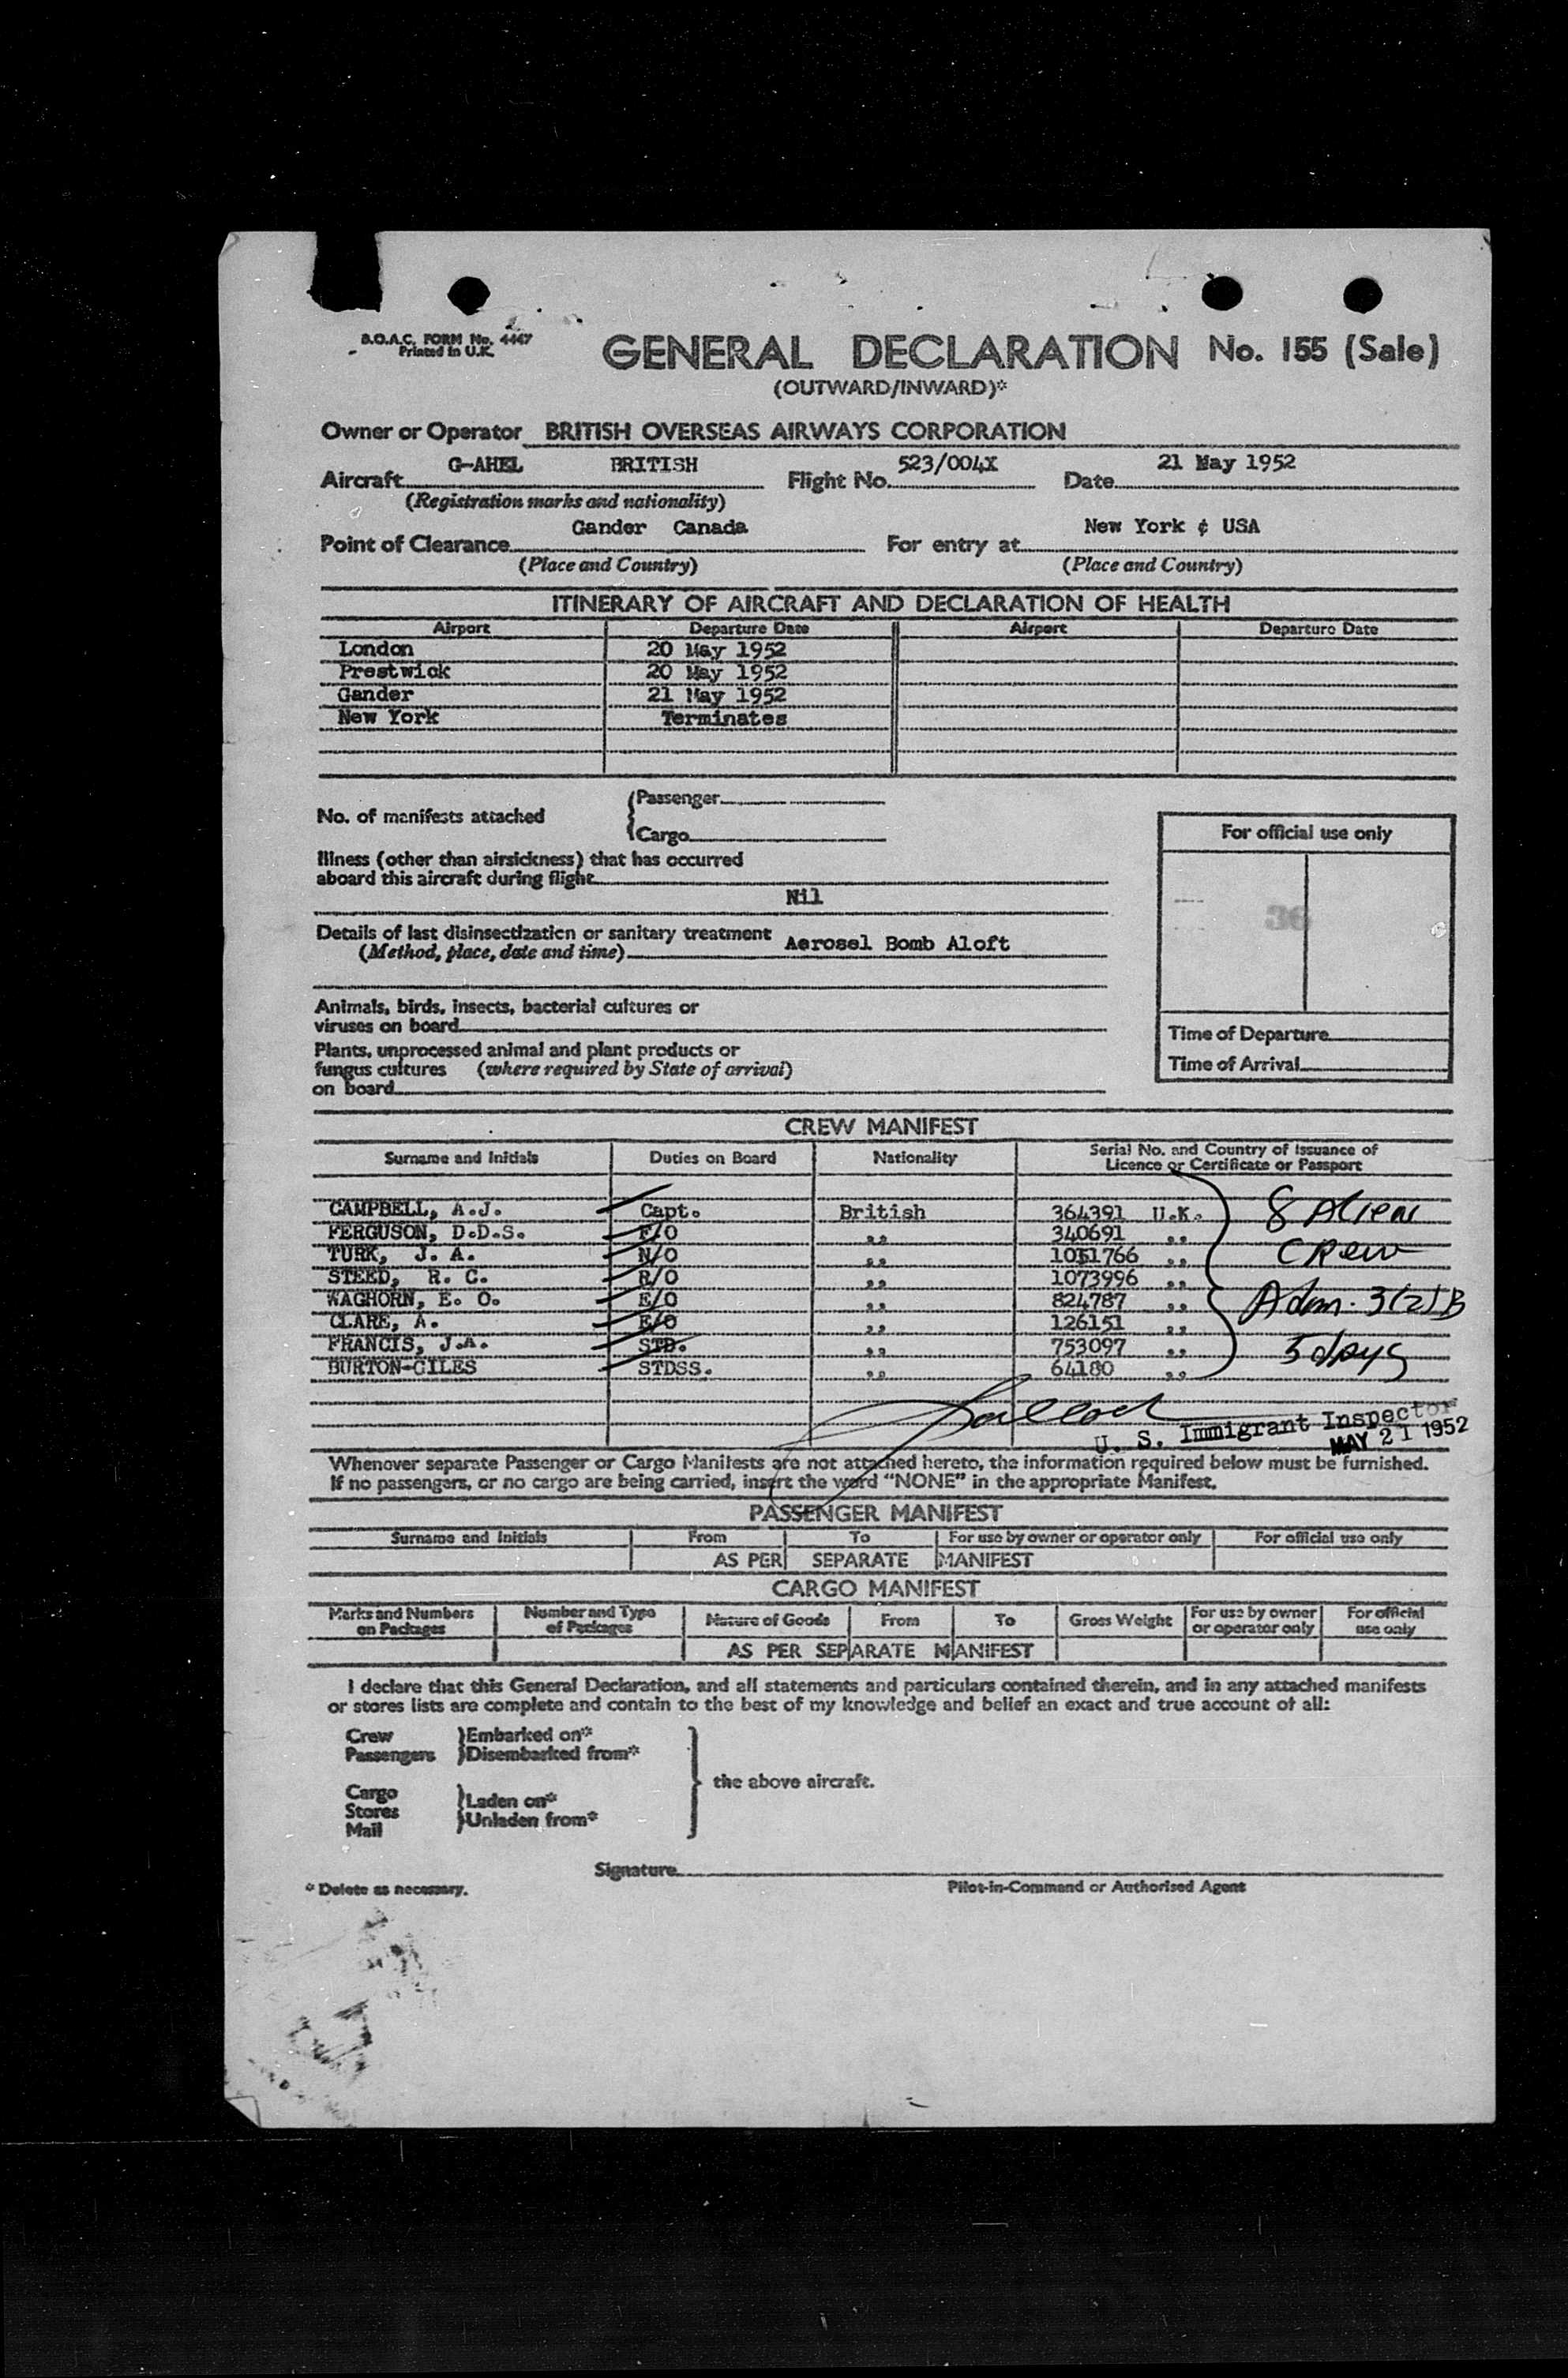 B.O.A.C. FORM No. 4447
Printed in U.K.
GENERAL DECLARATION No. 155 (Sale)
(OUTWARD/INWARD)*
Owner or Operator BRITISH OVERSEAS AIRWAYS CORPORATION
Aircraft G-AHEL BRITISH Flight No. 523/004X Date 21 May 1952
(Registration marks and nationality)
Point of Clearance Gander Canada For entry at New York ¢ USA
(Place and Country) (Place and Country)
ITINERARY OF AIRCRAFT AND DECLARATION OF HEALTH
Airport Departure Date Airport Departure Date
London 20 May 1952
Prestwick 20 May 1952
Gander 21 May 1952
New York Terminates
No. of manifests attached
Passenger
Cargo
For official use only
Illness (other than airsickness) that has occurred
aboard this aircraft during flight
Nil
36
Details of last disinsectization or sanitary treatment
(Method, place, date and time) Aerosel Bomb Aloft
Animals, birds, insects, bacterial cultures or
viruses on board
Time of Departure
Plants, unprocessed animal and plant products or
fungus cultures (where required by State of arrival)
on board
Time of Arrival
CREW MANIFEST
Surname and Initials Duties on Board Nationality Serial No. and Country of Issuance of
Licence or Certificate or Passport
CAMPBELL, A.J. Capt. British 364391 U.K. 8 Alien
FERGUSON, D.D.S. F/O ,, 340691 ,,
TURK, J. A. N/O ,, 1051766 ,, Crew
STEED, R. C. R/O ,, 1073996 ,,
WAGHORN, E. O. E/O ,, 824787 ,, Adm. 3(2)B
CLARE, A. E/O ,, 126151 ,,
FRANCIS, J.A. STD. ,, 753097 ,, 5 days
BURTON-GILES STDSS. ,, 64180 ,,
U. S. Immigrant Inspector
MAY 21 1952
Whenever separate Passenger or Cargo Manifests are not attached hereto, the information required below must be furnished.
If no passengers, or no cargo are being carried, insert the word "NONE" in the appropriate Manifest.
PASSENGER MANIFEST
Surname and Initials From To For use by owner or operator only For official use only
AS PER SEPARATE MANIFEST
CARGO MANIFEST
Marks and Numbers on Packages Number and Type of Packages Nature of Goods From To Gross Weight For use by owner or operator only For official use only
AS PER SEPARATE MANIFEST
I declare that this General Declaration, and all statements and particulars contained therein, and in any attached manifests
or stores lists are complete and contain to the best of my knowledge and belief an exact and true account of all:
Crew Embarked on*
Passengers Disembarked from*
the above aircraft.
Cargo
Stores
Mail
Laden on*
Unladen from*
Signature
* Delete as necessary.
Pilot-in-Command or Authorised Agent